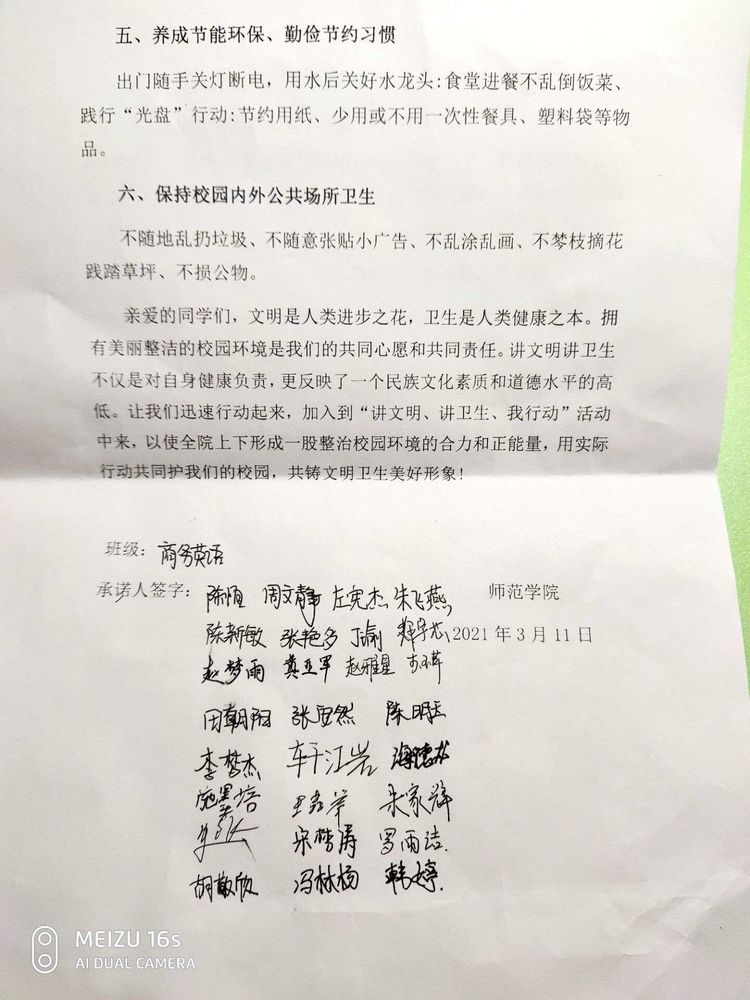 五、养成节能环保、勤俭节约习惯
出门随手关灯断电，用水后关好水龙头:食堂进餐不乱倒饭菜、
践行“光盘”行动:节约用纸、少用或不用一次性餐具、塑料袋等物
品。
六、保持校园内外公共场所卫生
不随地乱扔垃圾、不随意张贴小广告、不乱涂乱画、不梺枝摘花
践踏草坪、不损公物。
亲爱的同学们，文明是人类进步之花，卫生是人类健康之本。拥
有美丽整洁的校园环境是我们的共同心愿和共同责任。讲文明讲卫生
不仅是对自身健康负责，更反映了一个民族文化素质和道德水平的高
低。让我们迅速行动起来，加入到“讲文明、讲卫生、我行动”活动
中来，以使全院上下形成一股整治校园环境的合力和正能量，用实际
行动共同护我们的校园，共铸文明卫生美好形象!
班级: 商务英语
承诺人签字: 陈恒 周文静 左宪杰 朱飞燕 师范学院
陈新敏 张艳多 2021年3月11日
赵梦雨 龚亚军 赵雅星
田朝阳 张安然
李梦杰 轩江岩
宋家辉
宋梦涛 罗雨洁
胡敬欣 冯林杨 韩婷
MEIZU 16s
AI DUAL CAMERA